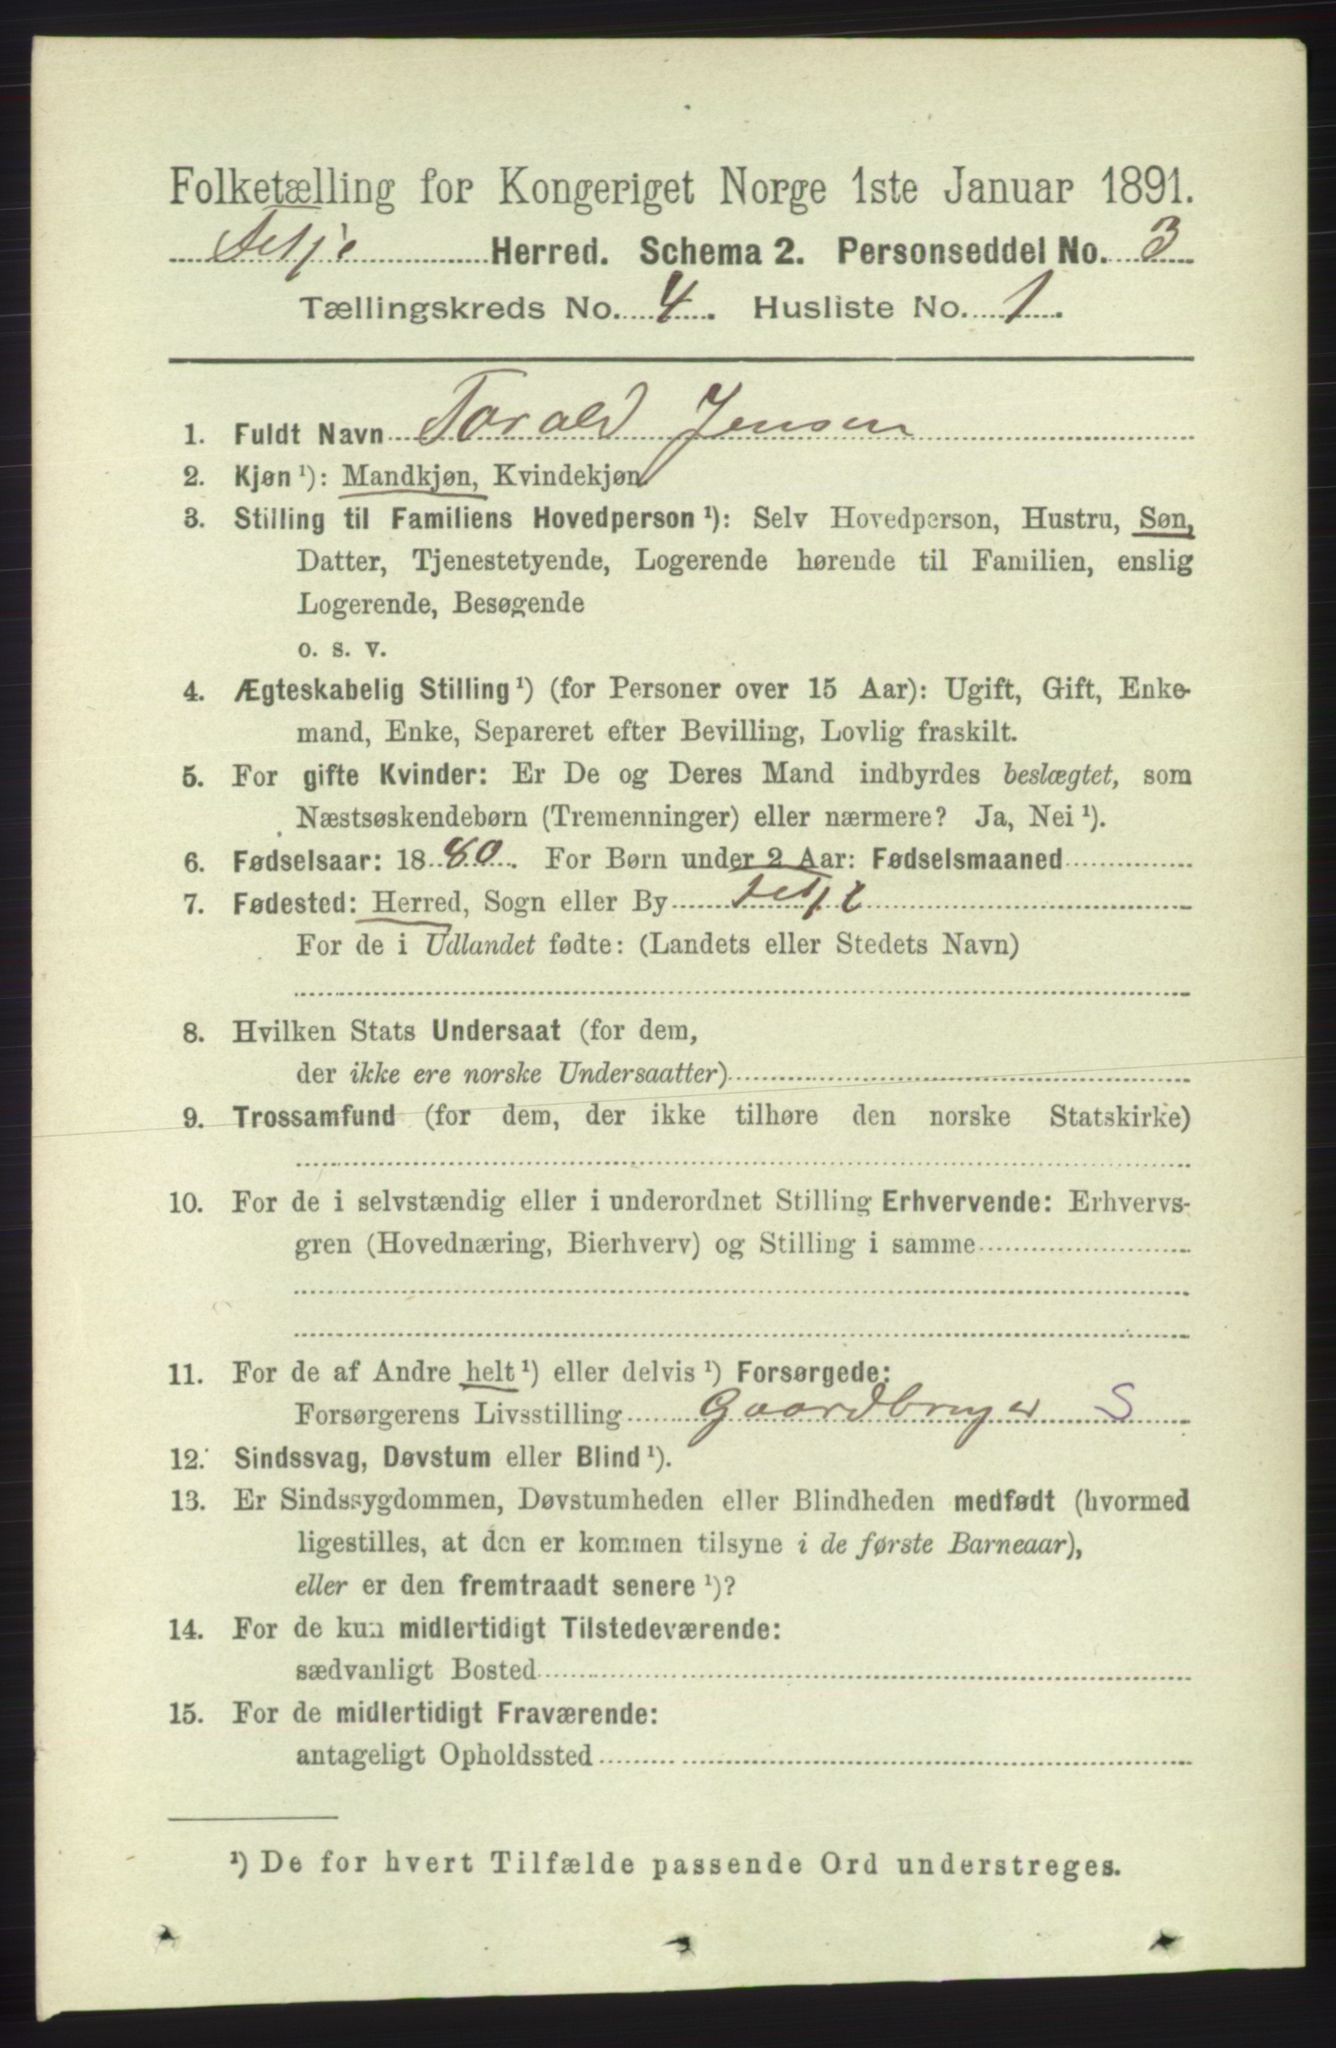 Folketælling for Kongeriget Norge 1ste Januar 1891.
Fetsje Herred. Schema 2. Personseddel No. 3
Tællingskreds No. 4. Husliste No. 1.
1. Fuldt Navn Torald Jensen
2. Kjøn ¹): Mandkjøn, Kvindekjøn
3. Stilling til Familiens Hovedperson ¹): Selv Hovedperson, Hustru, Søn,
Datter, Tjenestetyende, Logerende hørende til Familien, enslig
Logerende, Besøgende
o. s. v.
4. Ægteskabelig Stilling ¹) (for Personer over 15 Aar): Ugift, Gift, Enke-
mand, Enke, Separeret efter Bevilling, Lovlig fraskilt.
5. For gifte Kvinder: Er De og Deres Mand indbyrdes beslægtet, som
Næstsøskendebørn (Tremenninger) eller nærmere? Ja, Nei ¹).
6. Fødselsaar: 1880. For Børn under 2 Aar: Fødselsmaaned
7. Fødested: Herred, Sogn eller By
For de i Udlandet fødte: (Landets eller Stedets Navn)
8. Hvilken Stats Undersaat (for dem,
der ikke ere norske Undersaatter)
9. Trossamfund (for dem, der ikke tilhøre den norske Statskirke)
10. For de i selvstændig eller i underordnet Stilling Erhvervende: Erhvervs-
gren (Hovednæring, Bierhverv) og Stilling i samme
11. For de af Andre helt ¹) eller delvis ¹) Forsørgede:
Forsørgerens Livsstilling Gaardbruger S
12. Sindssvag, Døvstum eller Blind ¹).
13. Er Sindssygdommen, Døvstumheden eller Blindheden medfødt (hvormed
ligestilles, at den er kommen tilsyne i de første Barneaar),
eller er den fremtraadt senere ¹)?
14. For de kun midlertidigt Tilstedeværende:
sædvanligt Bosted
15. For de midlertidigt Fraværende:
antageligt Opholdssted
¹) De for hvert Tilfælde passende Ord understreges.